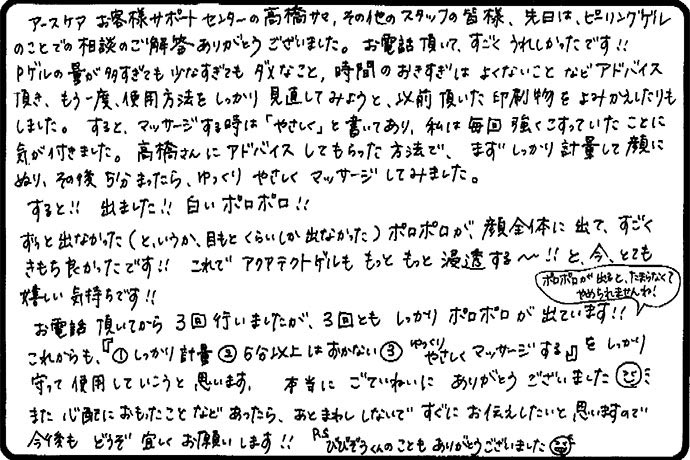 アースケア お客様サポートセンターの高橋サマ、その他のスタッフの皆様、先日は、ピーリングゲル
のことでの相談のご解答ありがとうございました。お電話頂いて、すごくうれしかったです!!
Pゲルの量が多すぎても少なすぎてもダメなこと、時間のおきすぎはよくないことなどアドバイス
頂き、もう一度、使用方法をしっかり見直してみようと、以前頂いた印刷物をよみかえしたりも
しました。すると、マッサージする時は「やさしく」と書いてあり、私は毎回強くこすっていたことに
気が付きました。高橋さんにアドバイスしてもらった方法で、まずしっかり計量して顔に
ぬり、その後5分まったら、ゆっくりやさしくマッサージしてみました。
すると!! 出ました!! 白いポロポロ!!
ずっと出なかった(と、いうか、目もとくらいしか出なかった)ポロポロが、顔全体に出て、すごく
きもち良かったです!! これでアクアテクトゲルももっともっと浸透する〜!!と、今、とても
嬉しい気持ちです!!
ポロポロが出ると、たまらなくて
やめられませんね!
お電話頂いてから3回行いましたが、3回ともしっかりポロポロが出ています!!
これからも、『①しっかり計量②5分以上はおかない③ゆっくりやさしくマッサージする』をしっかり
守って使用していこうと思います。本当にごていねいにありがとうございました
また心配におもったことなどあったら、あとまわししないですぐにお伝えしたいと思いますので
今後もどうぞ宜しくお願いします!! P.S びびぞうくんのこともありがとうございました